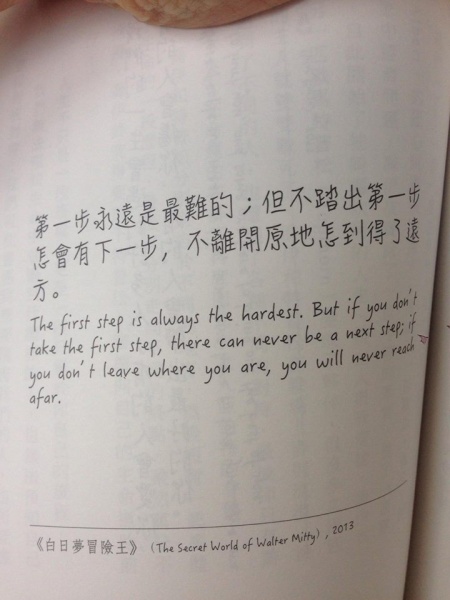 第一步永遠是最難的；但不踏出第一步
怎會有下一步，不離開原地怎到得了遠
方。
The first step is always the hardest. But if you don't
take the first step, there can never be a next step; if
you don't leave where you are, you will never reach
afar.
《白日夢冒險王》（The Secret World of Walter Mitty）, 2013